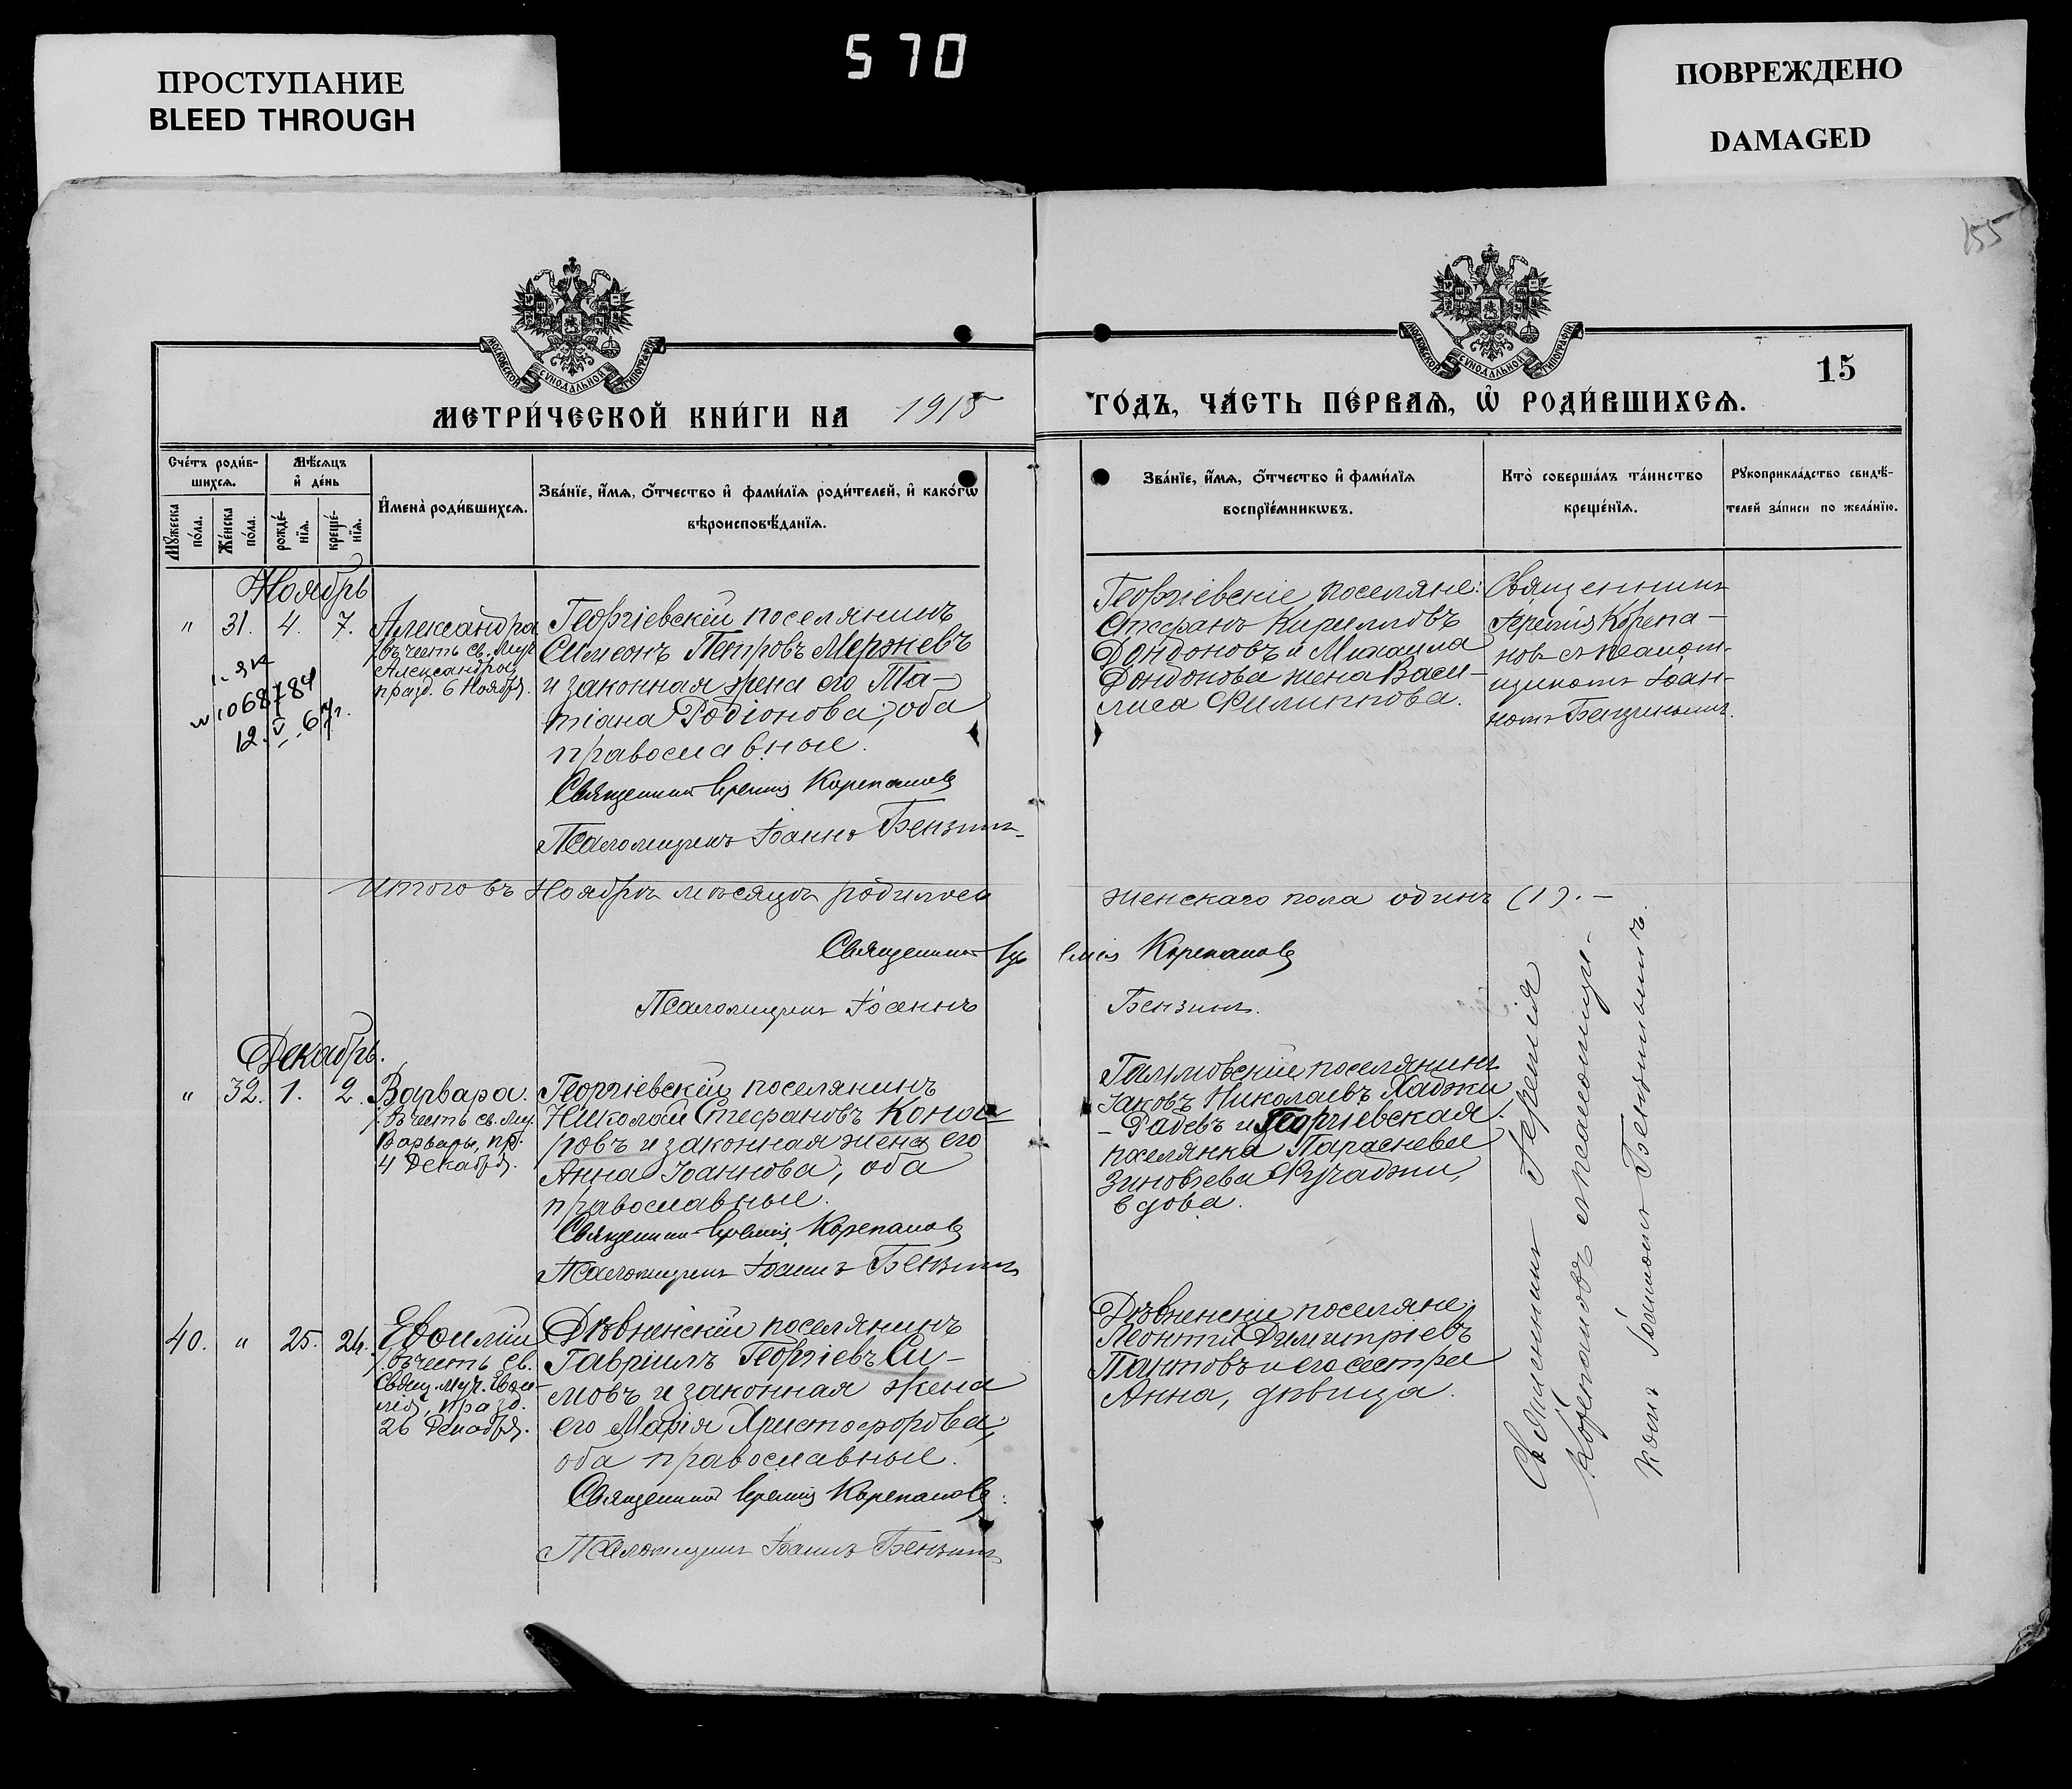 ПРОСТУПАНИЕ
BLEED THROUGH
570
ПОВРЕЖДЕНО
DAMAGED
155
МОСКОВСКОЙ СѴНОДАЛЬНОЙ ТИПОГРАФІИ
МОСКОВСКОЙ СѴНОДАЛЬНОЙ ТИПОГРАФІИ
15
МЕТРИ́ЧЕСКОЙ КНИ́ГИ НА 1915
ГО́ДЪ, ЧА́СТЬ ПЕ́РВАѦ, Ѡ҆ РОДИ́ВШИХСѦ.
Сче́тъ роди́в-
шихсѧ.
Мѣ́сѧцъ
и҆ де́нь
Мꙋ́жеска
по́ла.
Же́нска
по́ла.
рожде́-
нїѧ.
креще́-
нїѧ.
И҆мена̀ роди́вшихсѧ.
Зва́нїе, и҆́мѧ, ѻ҆́тчество и҆ фами́лїѧ роди́телей, и҆ како́гѡ
вѣроисповѣ́данїѧ.
Зва́нїе, и҆́мѧ, ѻ҆́тчество и҆ фами́лїѧ
воспрїе́мникѡвъ.
Кто̀ соверша́лъ та́инство
креще́нїѧ.
Рꙋкоприкла́дство свидѣ́-
телей за́писи по жела́нїю.
Ноябрь
" 31. 4. 7.
Александра
въ честь св. Муч.
Александры
празд. 6 Ноября.
1068784
12.V.67г.
Георгіевскій поселянинъ
Симеонъ Петровъ Мержевъ
и законная жена его Та-
тіана Родіонова, оба
православные.
Священникъ Іеремія Корепановъ
Псаломщикъ Іоаннъ Бензинъ
Георгіевскіе поселяне:
Стефанъ Кирилловъ
Дондоновъ и Михаила
Дондонова жена Васи-
лиса Филиппова.
Священникъ
Іеремія Корепа-
новъ съ псалом-
щикомъ Іоан-
номъ Бензинымъ.
Итого въ Ноябрѣ мѣсяцѣ родилось женскаго пола одинъ (1).-
Священникъ Іеремія Корепановъ
Псаломщикъ Іоаннъ Бензинъ.
Декабрь.
" 32. 1. 2.
Варвара.
въ честь св. Муч.
Варвары, пр.
4 Декабря.
Георгіевскій поселянинъ
Николай Стефановъ Коноа-
ровъ и законная жена его
Анна Іоаннова, оба
православные.
Священникъ Іеремія Корепановъ
Псаломщикъ Іоаннъ Бензинъ
поселянинъ
Іаковъ Николаевъ Хаджи
-Радевъ и Георгіевская
поселянка Параскева
Зиновіева Фучаджи,
вдова.
40. " 25. 26.
Евѳимій
въ честь св.
Свящ. муч. Евѳи-
мія, празд.
26 Декабря.
Дѣвненскій поселянинъ
Гавріилъ Георгіевъ Си-
мовъ и законная жена
его Марія Христофорова,
оба православные.
Священникъ Іеремія Корепановъ.
Псаломщикъ Іоаннъ Бензинъ
Дѣвненскіе поселяне:
Леонтій Димитріевъ
Пантовъ и его сестра
Анна, дѣвица.
Священникъ Іеремія
Корепановъ съ псаломщи-
комъ Іоанномъ Бензинымъ.